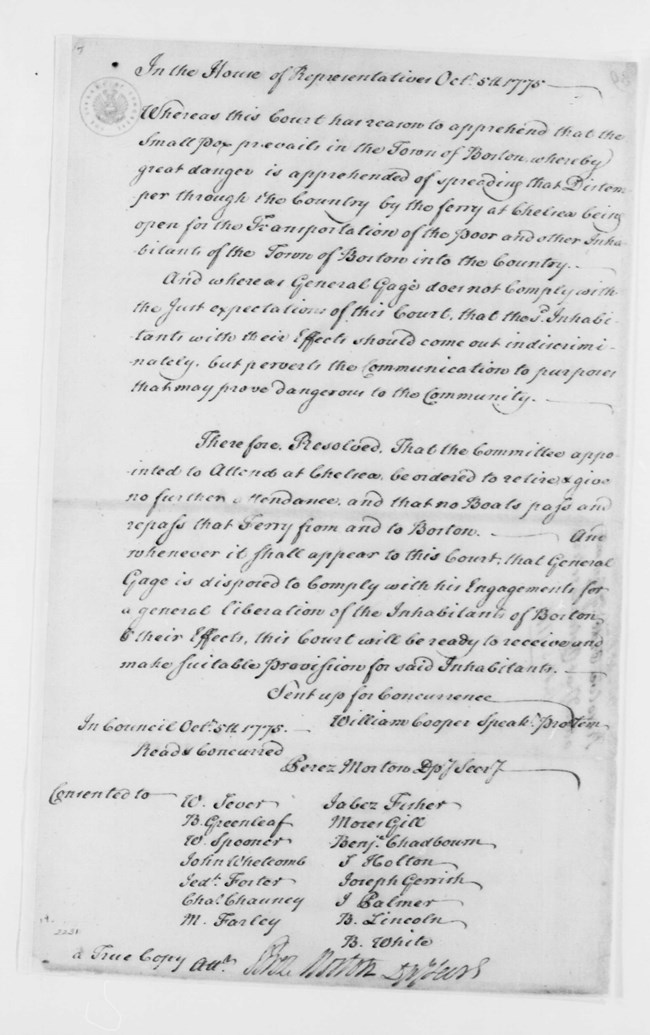 In the House of Representatives Octr. 5th. 1775
Whereas this Court has reason to apprehend that the
Small Pox prevails in the Town of Boston, whereby
great danger is apprehended of spreeding that Distem-
per through the Country by the ferry at Chelsea being
open for the Transportation of the Poor and other Inha-
bitants of the Town of Boston into the Country.
And whereas General Gage does not Comply with
the Just expectations of this Court, that the sd. Inhabi-
tants with their Effects should come out indiscrimi-
nately, but perverts the Communication to purposes
that may prove dangerous to the Community.
Therefore, Resolved, That the Committee appo-
inted to Attend at Chelsea, be ordered to retire & give
no further attendance, and that no Boats pass and
repass that Ferry from and to Boston. And
whenever it shall appear to this Court, that General
Gage is disposed to Comply with his Engagements for
a general liberation of the Inhabitants of Boston
& their Effects, this Court will be ready to receive and
make suitable Provission for said Inhabitants.
Sent up for Concurrence
William Cooper Speakr. Protem
In Council Octr. 5th. 1775.
Read & Concurred
Perez Morton Dpy Secry
Consented to
W. Sever Jabez Fisher
B. Greenleaf Moses Gill
W. Spooner Benjn. Chadbourn
John Whetcomb J Holton
Jedh. Foster Joseph Gerrish
Chas. Chauncy J Palmer
M. Farley B. Lincoln
B. White
a True Copy Attt. Perez Morton Dpy Secry
2231